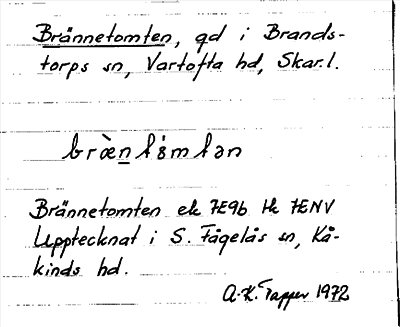 Brännetomten, gd i Brands-
torps sn, Vartofta hd, Skar.l.
bræ̀n tòm tən
Brännetomten ek 7E9b Hk 7ENV
Upptecknat i S. Fågelås sn, Kå-
kinds hd.
A.K. Tapper 1972